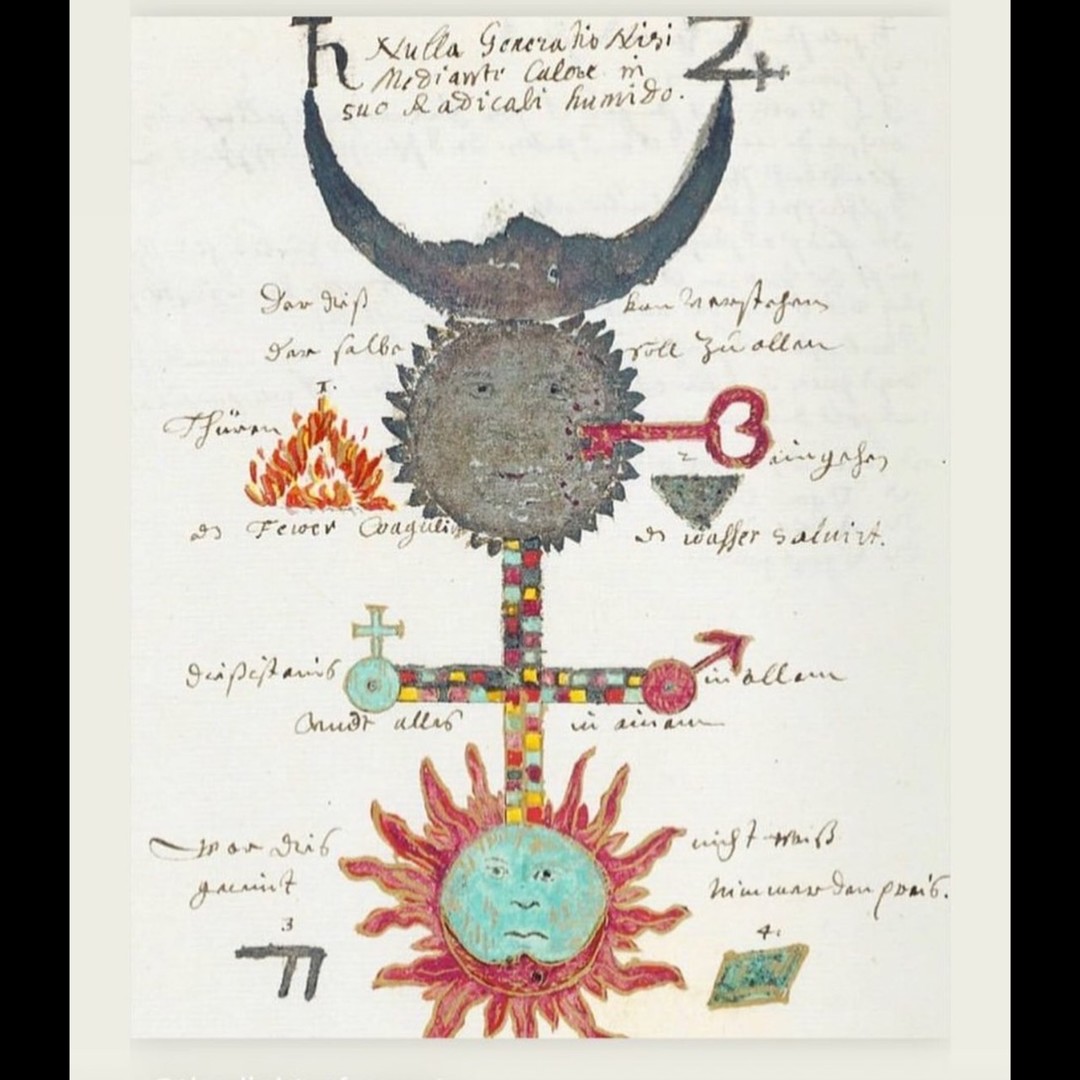 Nulla Generatio Nisi
Mediante Calore in
suo Radicali humido.
Der diß kan Verstehen
der selbe soll zu allen
1.
Thüren eingehen
2
ds Fewer Coagulirt ds wasser solvirt.
in allem
Vndt alles in einem
wer dis nicht weiß
gewint nimmer den preis.
3 4.